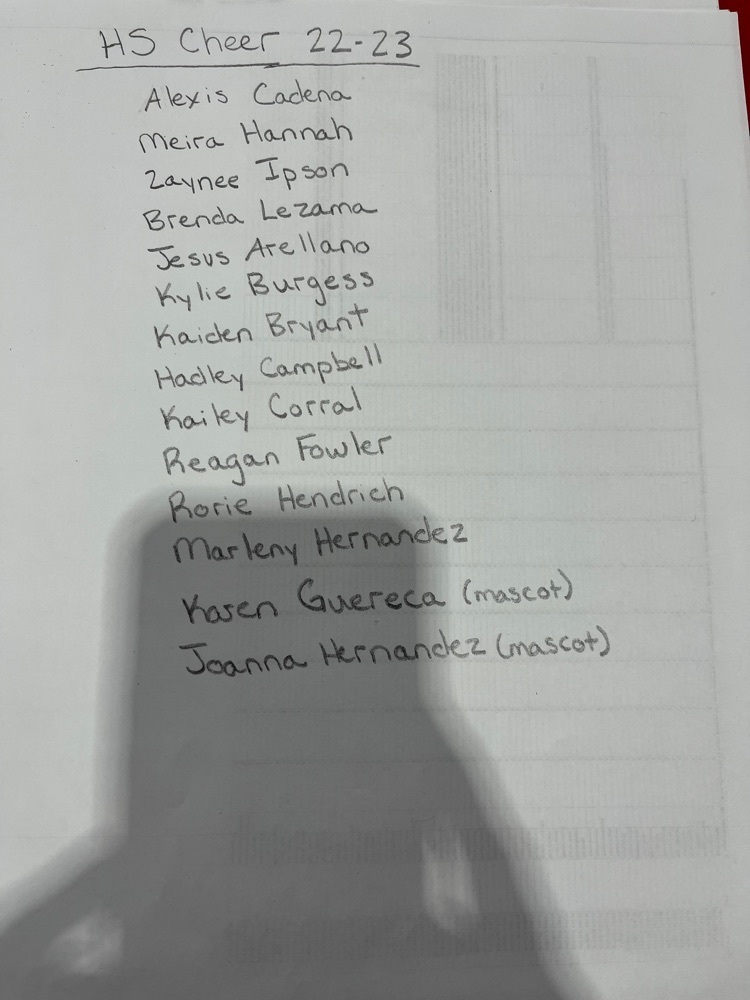 HS Cheer 22-23
Alexis Cadena
Meira Hannah
Zaynee Ipson
Brenda Lezama
Jesus Arellano
Kylie Burgess
Kaiden Bryant
Hadley Campbell
Kailey Corral
Reagan Fowler
Rorie Hendrich
Marleny Hernandez
Karen Guereca (mascot)
Joanna Hernandez (mascot)